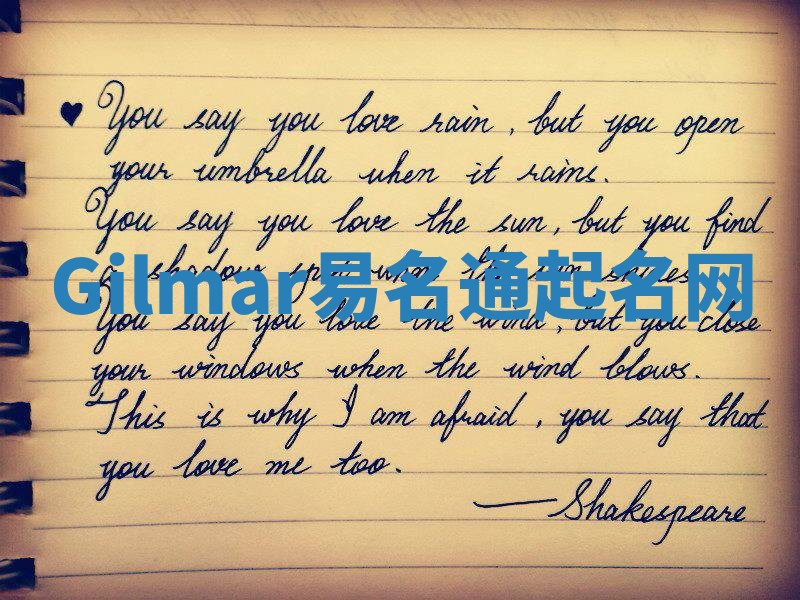 ♥ You say you love rain, but you open
your umbrella when it rains.
You say you love the sun, but you find
a shadow spot when the sun shines.
Gilmar易名通起名网
You say you love the wind, but you close
your windows when the wind blows.
This is why I am afraid, you say that
you love me too.
—Shakespeare